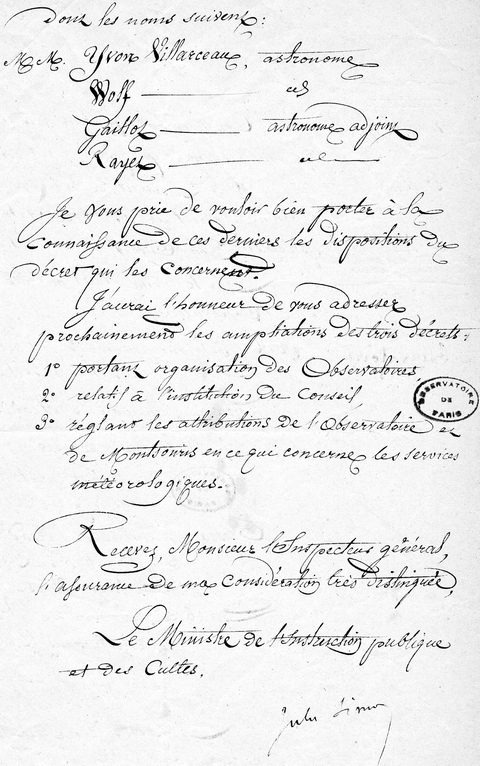 dont les noms suivent :
M.M. Yvon Villarceau, astronome
Wolf — id
Gaillot — astronome adjoint
Rayet — id —
Je vous prie de vouloir bien porter à la
connaissance de ces derniers les dispositions du
décret qui les concernent.
J'aurai l'honneur de vous adresser
prochainement les ampliations des trois décrets :
1º portant organisation des Observatoires
2º relatif à l'institution du Conseil,
3º réglant les attributions de l'Observatoire et
de Montsouris en ce qui concerne les services
météorologiques.
OBSERVATOIRE
DE
PARIS
Recevez, Monsieur l'Inspecteur général,
l'assurance de ma considération très distinguée,
Le Ministre de l'Instruction publique
et des Cultes.
Jules Simon